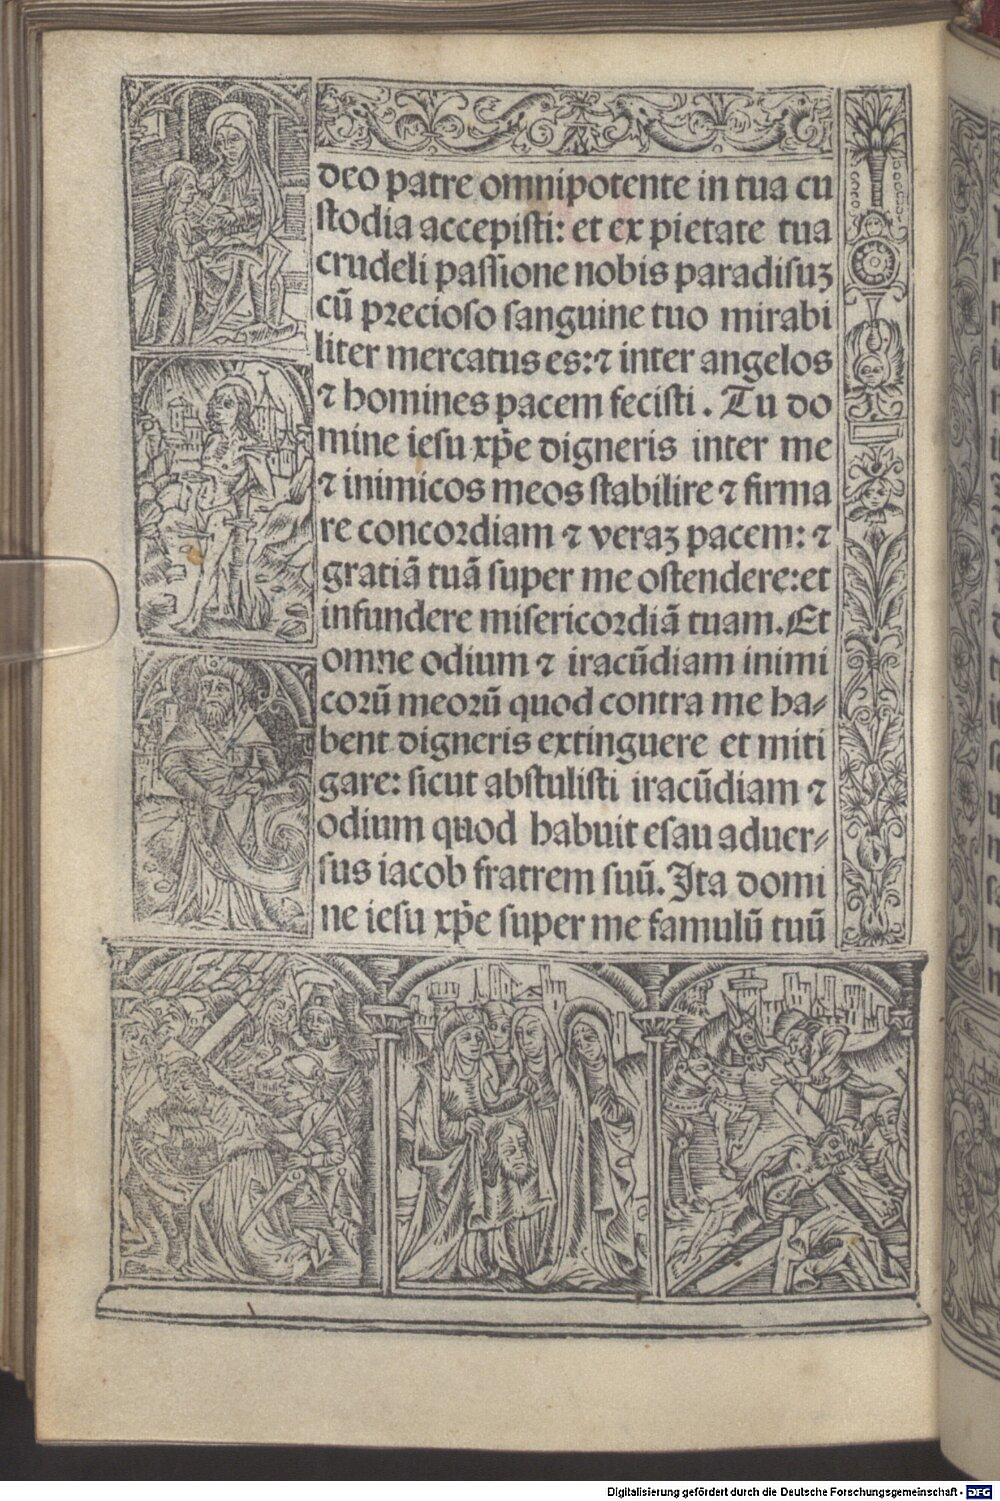 deo patre omnipotente in tua cu
stodia accepisti: et ex pietate tua
crudeli passione nobis paradisuꝫ
cū precioso sanguine tuo mirabi
liter mercatus es: ⁊ inter angelos
⁊ homines pacem fecisti. Tu do
mine iesu xp̄e digneris inter me
⁊ inimicos meos stabilire ⁊ firma
re concordiam ⁊ veraꝫ pacem: ⁊
gratiā tuā super me ostendere: et
infundere misericordiā tuam. Et
omne odium ⁊ iracūdiam inimi
corū meorū quod contra me ha⸗
bent digneris extinguere et miti
gare: sicut abstulisti iracūdiam ⁊
odium quod habuit esau aduer⸗
sus iacob fratrem suū. Ita domi
ne iesu xp̄e super me famulū tuū
Digitalisierung gefördert durch die Deutsche Forschungsgemeinschaft - DFG